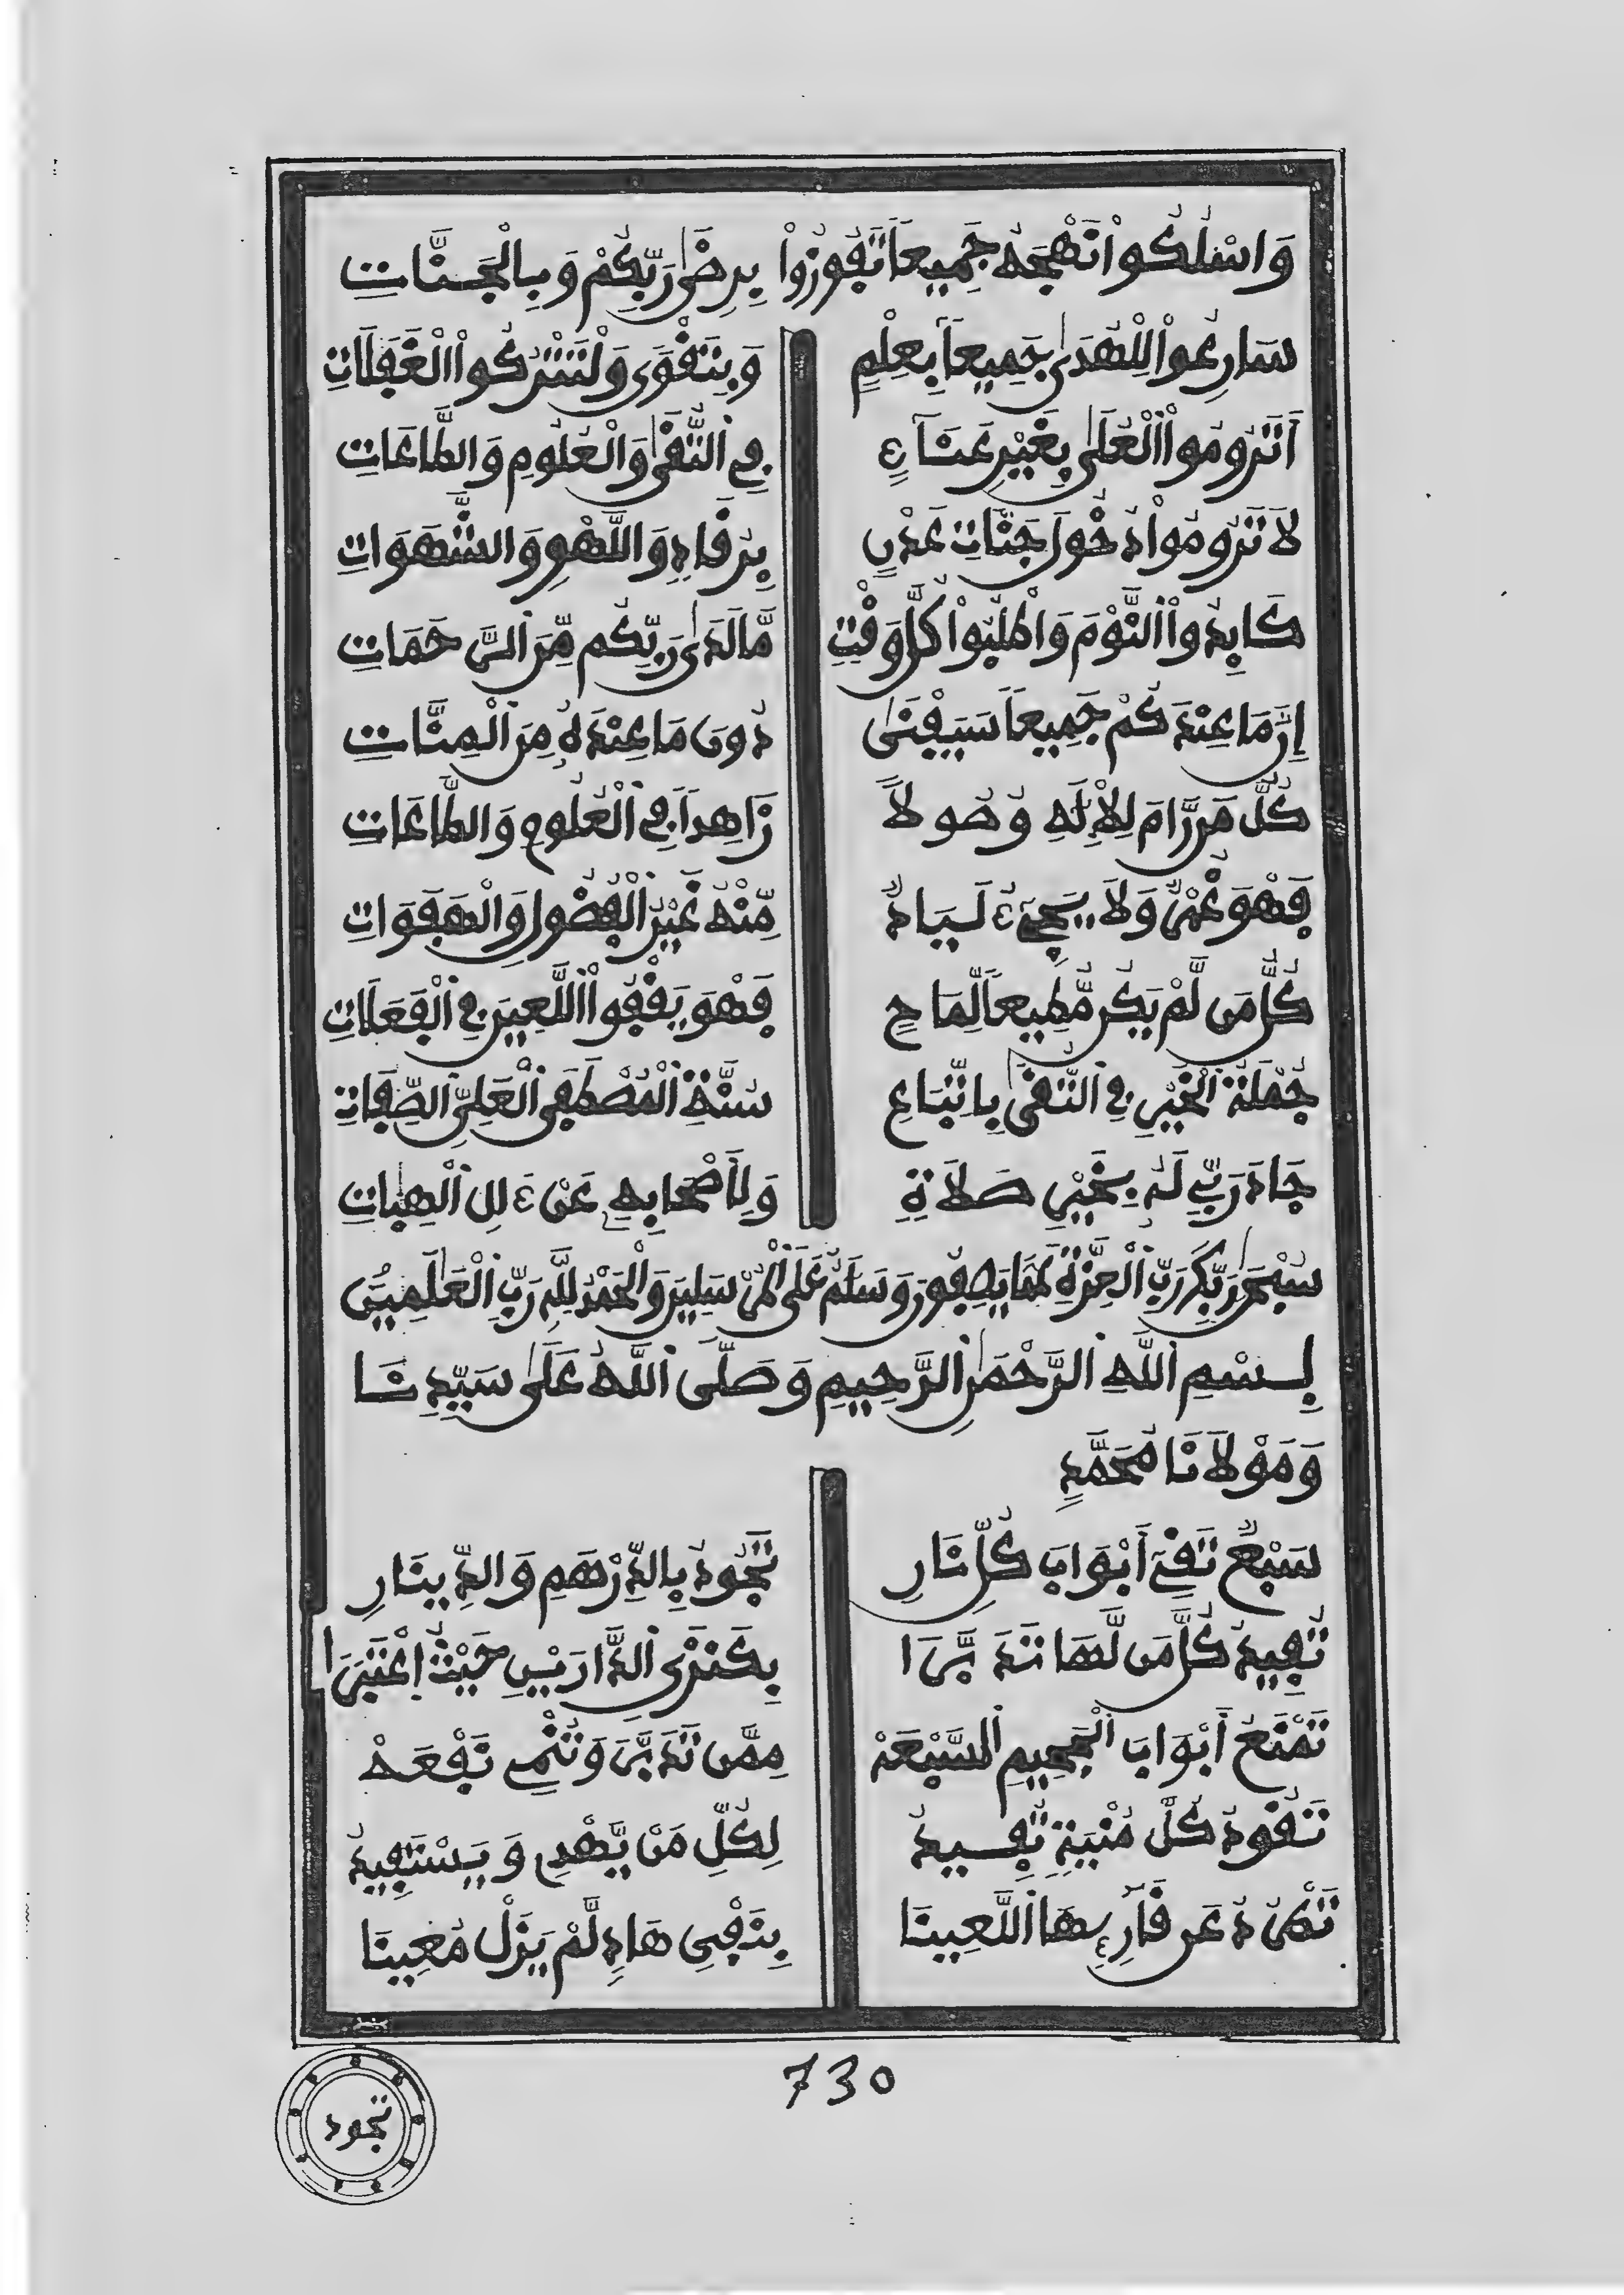 وَاسْلُكُواْ نَهْجَهُ جَمِيعاً تَفُوزُواْ بِرِضَى رَبِّكُمْ وَبِالْجَنَّاتِ
سَارِعُواْ لِلْهُدَى جَمِيعاً بِعِلْمٍ وَبِتَقْوَى وَلْتَتْرُكُواْ الْغَفَلَاتِ
أَتَرُومُواْ الْعُلَى بِغَيْرِ عَنَاءٍ فِي التُّقَى وَالْعُلُومِ وَالطَّاعَاتِ
لَا تَرُومُواْ دُخُولَ جَنَّاتِ عَدْنٍ بِرُقَادٍ وَاللَّهْوِ وَالشَّهَوَاتِ
كَابِدُواْ النَّوْمَ وَاطْلُبُواْ كُلَّ وَقْتِ مَّا لَدَى رَبِّكُم مِّنَ الرَّحَمَاتِ
إِنَّ مَا عِنْدَكُمْ جَمِيعاً سَيَفْنَى دُونَ مَا عِنْدَهُ مِنَ الْمِنَّاتِ
كُلُّ مَن رَّامَ لِلْإِلَهِ وُصُولاً زَاهِداً فِي الْعُلُومِ وَالطَّاعَاتِ
فَهْوَ غُمْرٌ وَلَا يَجِيءُ لَسِيَادٌ مِّنْهُ غَيْرُ الْفُضُولِ وَالْهَفَوَاتِ
كُلُّ مَن لَّمْ يَكُن مُّطِيعاً لِّمَاحٍ فَهْوَ يَقْفُواْ اللَّعِينَ فِي الْفَعَلَاتِ
جُمْلَةُ الْخَيْرِ فِي التُّقَى بِاتِّبَاعِ سُنَّةِ الْمُصْطَفَى الْعَلِيِّ الصِّفَاتِ
جَادَ رَبِّي لَهُ بِخَيْرِ صَلَاةٍ وَلِأَصْحَابِهِ عَنْ ءَلِ الْهِبَاتِ
سُبْحَنَ رَبِّكَ رَبِّ الْعِزَّةِ عَمَّا يَصِفُونَ وَسَلَمٌ عَلَى الْمُرْسَلِينَ وَالْحَمْدُ لِلَّهِ رَبِّ الْعَلَمِينَ
بِسْمِ اللَّهِ الرَّحْمَنِ الرَّحِيمِ وَصَلَّى اللَّهُ عَلَى سَيِّدِنَا
وَمَوْلَانَا مُحَمَّدٍ
سَبْعٌ تَقِي أَبْوَابَ كُلِّ نَارِ تَجُودُ بِالدِّرْهَمِ وَالدِّينَارِ
تُفِيدُ كُلَّ مَن لَّهَا تَدَبَّرَا بِكَنْزَيِ الدَّارَيْنِ حَيْثُ إِعْتَبَرَا
تَمْنَعُ أَبْوَابَ الْجَحِيمِ السَّبْعَهْ مِمَّن تَدَبَّرَ وَتُنْمِي نَفْعَهْ
تَقُودُ كُلَّ مُنْيَةٍ تُفِيدُ لِكُلِّ مَنْ يَهْدِي وَيَسْتَفِيدُ
تَطْرُدُ عَن قَارِئِهَا اللَّعِينَا بِنَفْيِ هَادٍ لَّمْ يَزَلْ مُعِينَا
730
تجود